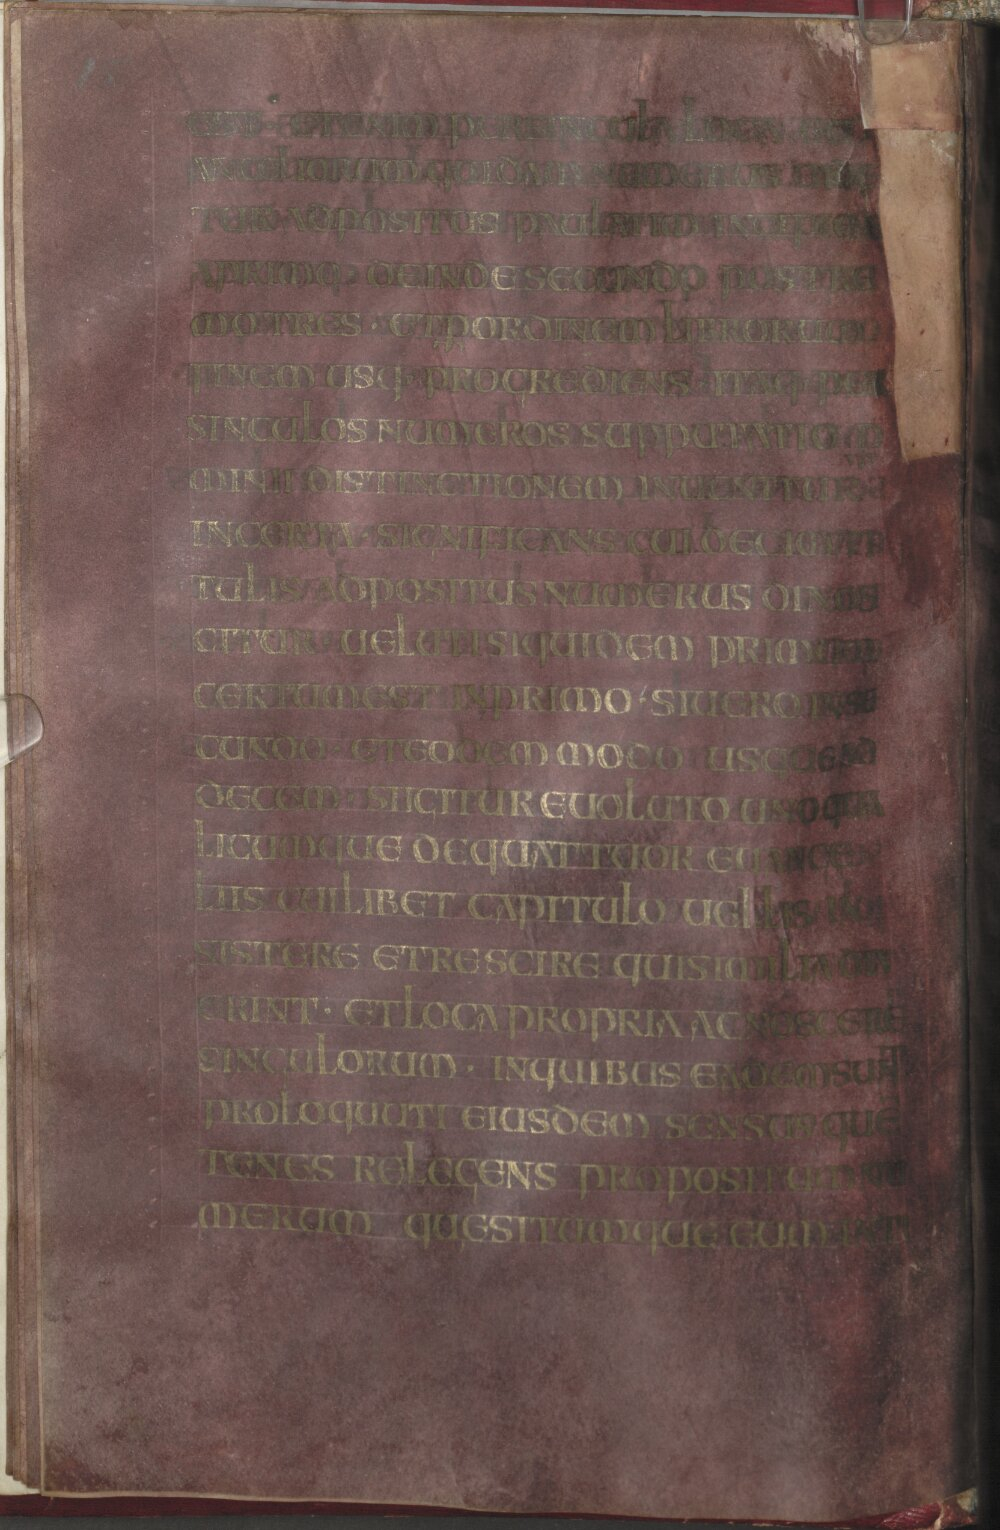 ETENIM PER SINGULA LOCA EU
ANGELIORUM QUIDAM NUMERUS UIDE
TUR ADPOSITUS PAULATIM INCIPIENS
APRIMO · DEINDE SECUNDO POSTRE
MO TRES · ET P ORDINEM LIBRORUM
FINEM USQ· PROGREDIENS ITAQ· PER
SINGULOS NUMEROS SUPPUTATIO
MINII DISTINCTIONEM INUENITUR
INCERTA · SIGNIFICANS CUI DECEM TI
TULIS ADPOSITUS NUMERUS DINOS
CITUR · UELUTI SIQUIDEM PRIMUM
CERTUM EST IN PRIMO · SIUERO IN SE
CUNDO · ET EODEM MODO USQUE AD
DECEM · SI IGITUR EUOLUTO UNO QUA
LICUMQUE DE QUATTUOR EUANGE
LIIS CUILIBET CAPITULO UELLIS IN
SISTERE ET RESCIRE QUI SIMILIA DIX
ERINT · ET LOCA PROPRIA AGNOSCERE
SINGULORUM · IN QUIBUS EADEM SUNT
PROLOQUUTI EIUSDEM SENSUM QUE
TENES RELEGENS PROPOSITUM NU
MERUM QUESITUMQUE EUM INT